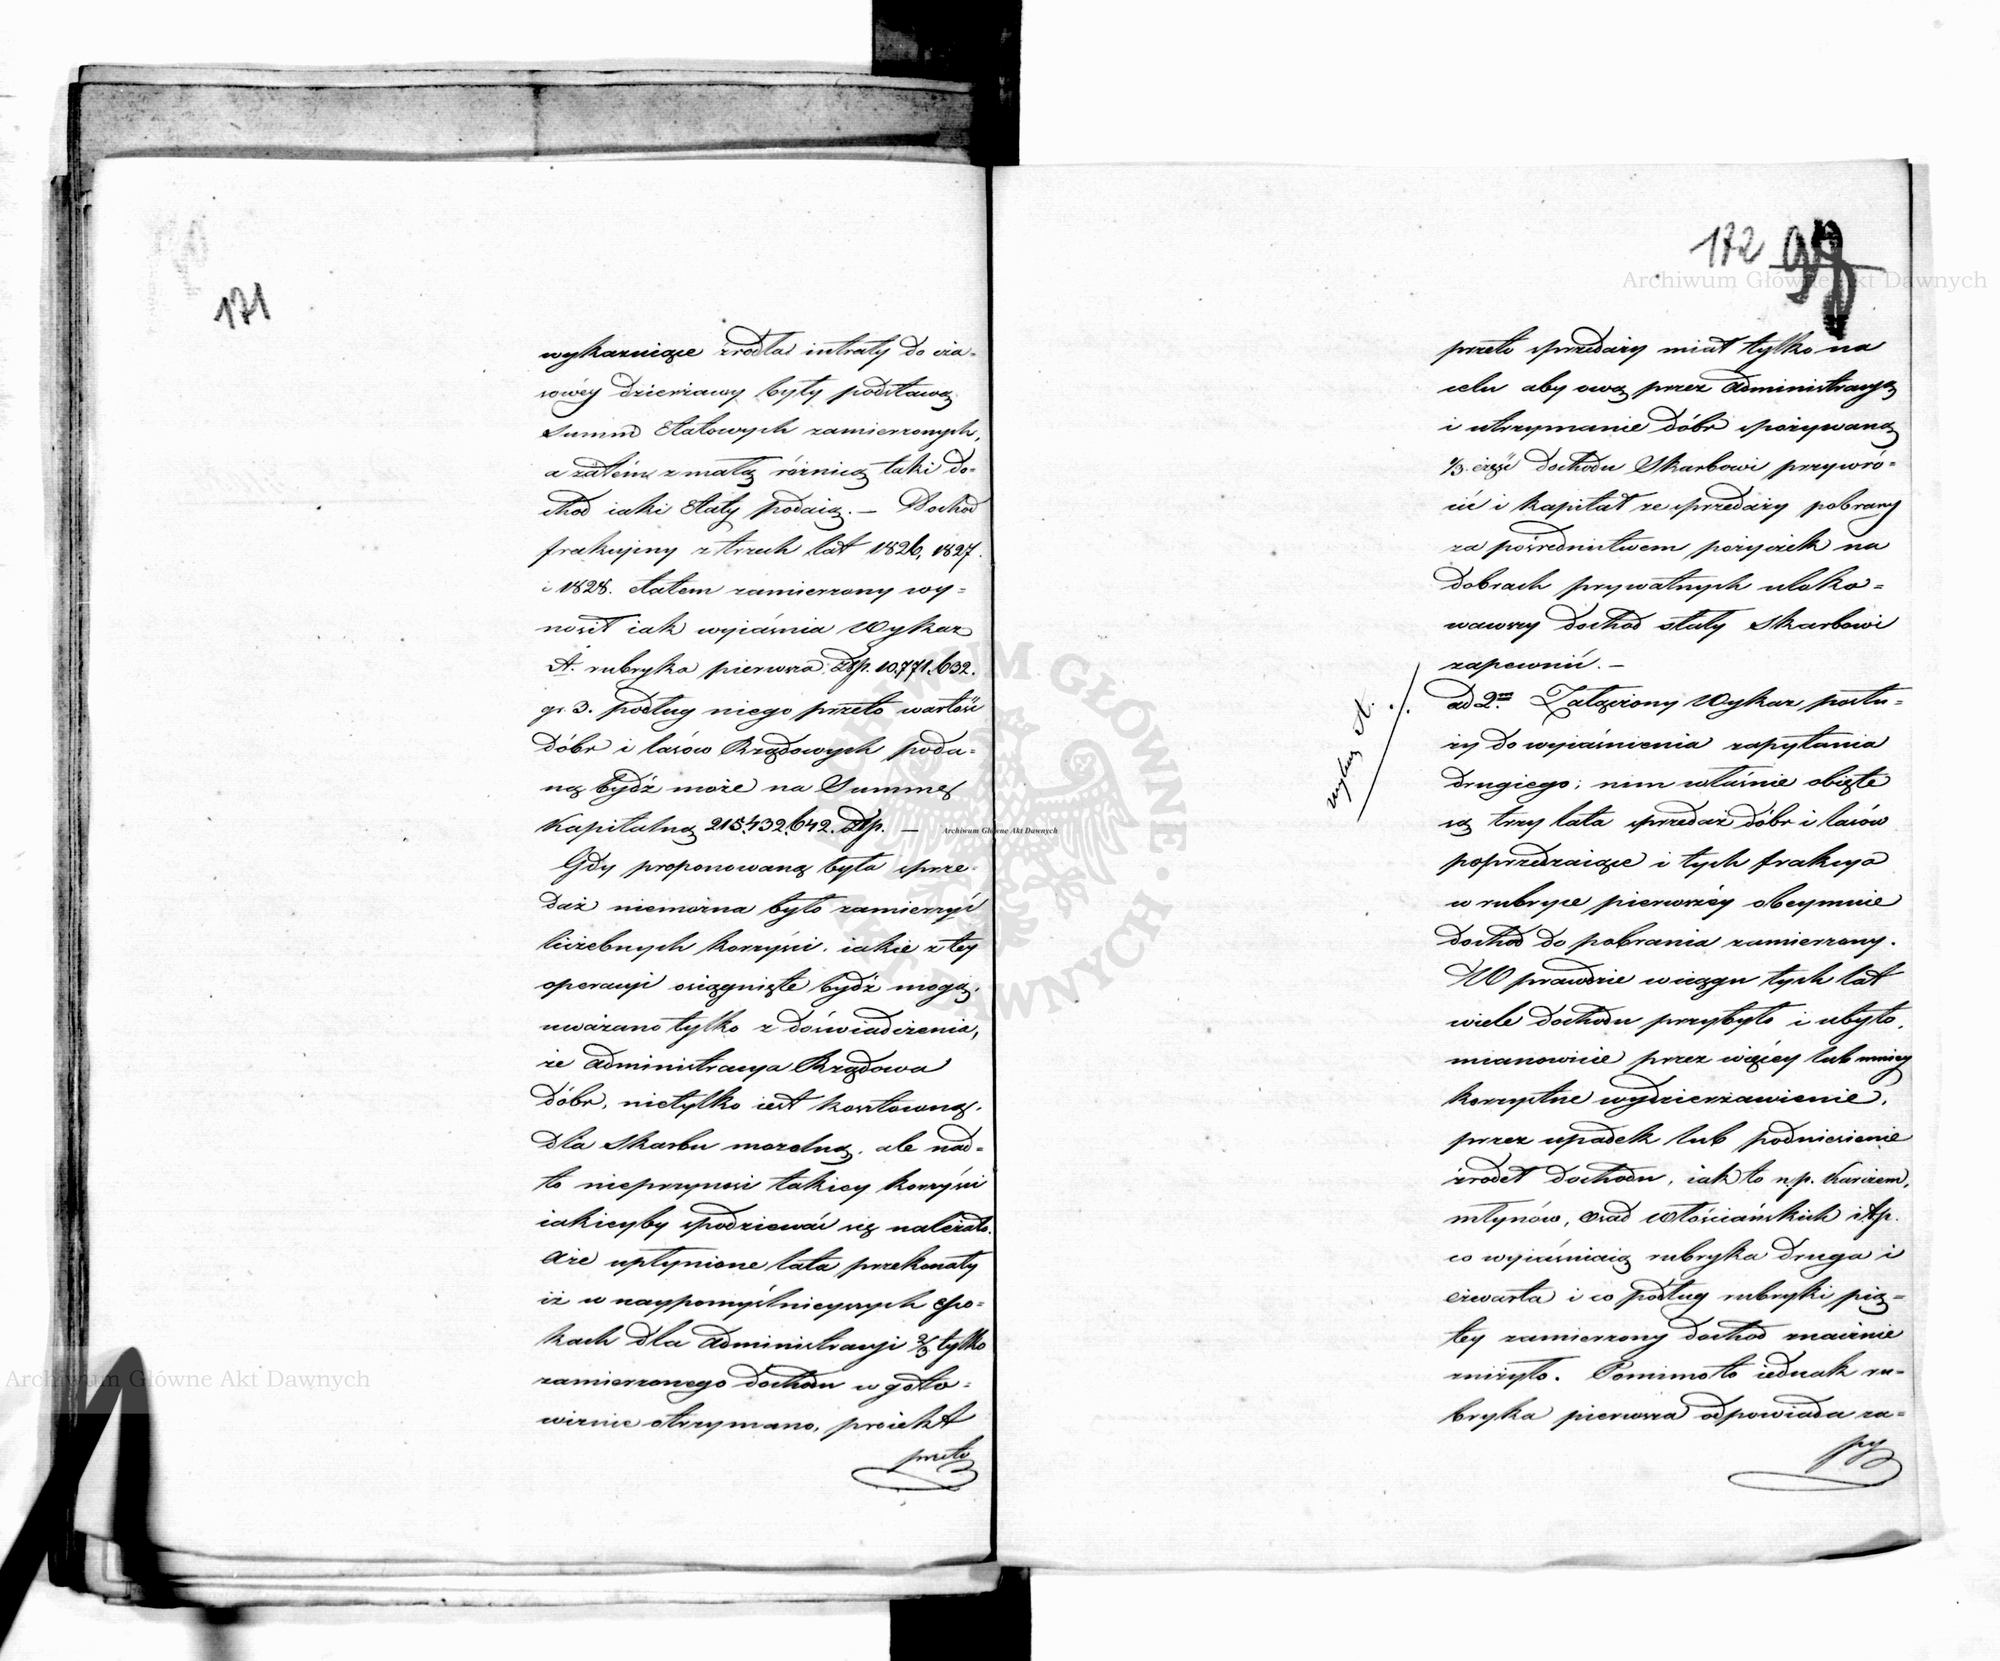 171
wykazuiące źrodła intraty do cza-
sowéy dzierżawy były podstawą
Summ Etatowych zamierzonych,
a zatém z małą różnicą taki do-
chod iaki Etaty podaią. — Dochod
frakcyiny z trzech lat 1826, 1827.
i 1828. Etatem zamierzony wy-
nosił iak wyiaśnia Wykaz
A. rubryka pierwsza Złp. 10,771,632.
gr. 3. podług niego przeto wartość
dóbr i lasów Rządowych poda-
ną bydź może na Summę
Kapitalną 215,432,642. Złp. —
Gdy proponowaną była sprze-
daż niemożna było zamierzyć
liczebnych korzyści, iakie z tey
operacyi osiągnięte bydź mogą,
uważano tylko z doświadczenia,
że Administracya Rządowa
dóbr, nietylko iest kosztowną,
dla Skarbu mozolną, ale nad-
to nieprzynosi takiey korzyści
iakieyby spodziewać się należało,
Aże upłynione lata przekonały
iż w naypomyślnieyszych epo-
kach dla Administracyi 2/3 tylko
zamierzonego dochodu w goto-
wiznie otrzymano, proiekt
przeto
172 99
przeto sprzedaży miał tylko na
celu aby ową przez Administracyą
i utrzymanie dóbr spożywaną
1/3. część dochodu Skarbowi przywró-
cić i kapitał ze sprzedaży pobrany
za pośrednictwem pożyczek na
dobrach prywatnych uloko-
wawszy dochod stały Skarbowi
zapewnić. —
wykaz A.
ad 2m Załączony Wykaz posłu-
ży do wyiaśnienia zapytania
drugiego; nim właśnie obięte
są trzy lata sprzedaż dóbr i lasów
poprzedzaiące i tych frakcya
w rubryce pierwszéy obeymuie
dochod do pobrania zamierzony.
W prawdzie w ciągu tych lat
wiele dochodu przybyło i ubyło,
mianowicie przez więcéy lub mniey
korzystne wydzierżawienie,
przez upadek lub podniesienie
źrodeł dochodu, iak to n.p. karczem,
młynów, osad włościańskich itp.
co wyiaśniaią rubryka druga i
czwarta i co podług rubryki pią-
tey zamierzony dochod znacznie
zniżyło. Pomimo to iednak ru-
bryka pierwsza odpowiada za-
py
Archiwum Główne Akt Dawnych
Archiwum Główne Akt Dawnych
Archiwum Główne Akt Dawnych